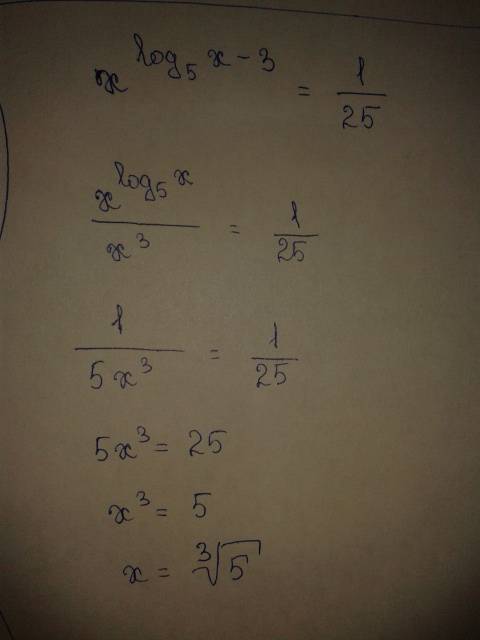 x^{log₅ x - 3} = 1/25
x^{log₅ x}/x³ = 1/25
1/5x³ = 1/25
5x³ = 25
x³ = 5
x = ³√5